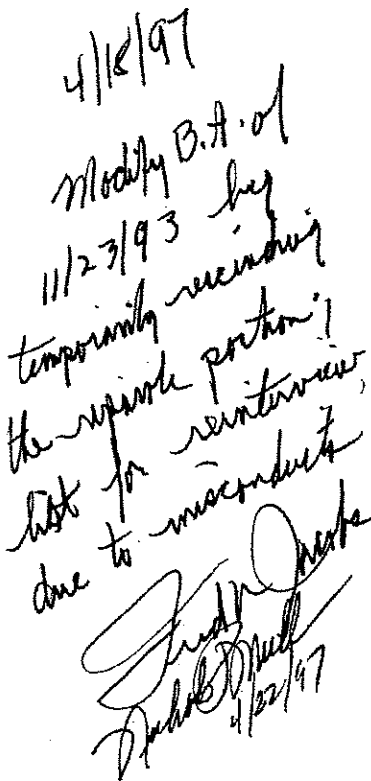 4/18/97
Modify B.A. of
11/23/93 by
temporarily rescinding
the parole portion;
list for reinterview,
due to misconducts
Fred W Jacobs
4/22/97